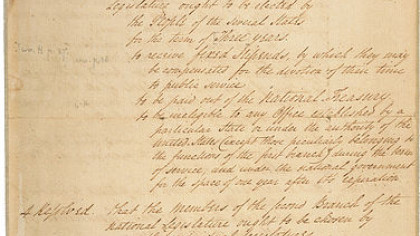 Legislature ought to be elected by
the People of the several States
for the term of Three years.
to receive fixed Stipends, by which they may
be compensated for the devotion of their time
to public service
to be paid out of the National Treasury.
to be ineligible to any Office established by a
particular State or under the authority of the
United States (except those peculiarly belonging to
the functions of the first branch) during the term
of service, and under the national government
for the space of one year after its expiration.
4 Resolved. that the members of the second Branch of the
national Legislature ought to be chosen by